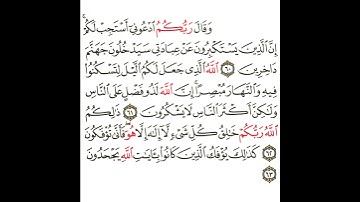 وَقَالَ رَبُّكُمُ ٱدْعُونِىٓ أَسْتَجِبْ لَكُمْ
إِنَّ ٱلَّذِينَ يَسْتَكْبِرُونَ عَنْ عِبَادَتِى سَيَدْخُلُونَ جَهَنَّمَ
دَاخِرِينَ ٦٠ ٱللَّهُ ٱلَّذِى جَعَلَ لَكُمُ ٱلَّيْلَ لِتَسْكُنُوا۟
فِيهِ وَٱلنَّهَارَ مُبْصِرًا إِنَّ ٱللَّهَ لَذُو فَضْلٍ عَلَى ٱلنَّاسِ
وَلَٰكِنَّ أَكْثَرَ ٱلنَّاسِ لَا يَشْكُرُونَ ٦١ ذَٰلِكُمُ
ٱللَّهُ رَبُّكُمْ خَٰلِقُ كُلِّ شَىْءٍ لَّآ إِلَٰهَ إِلَّا هُوَ فَأَنَّىٰ تُؤْفَكُونَ
٦٢ كَذَٰلِكَ يُؤْفَكُ ٱلَّذِينَ كَانُوا۟ بِـَٔايَٰتِ ٱللَّهِ يَجْحَدُونَ
٦٣